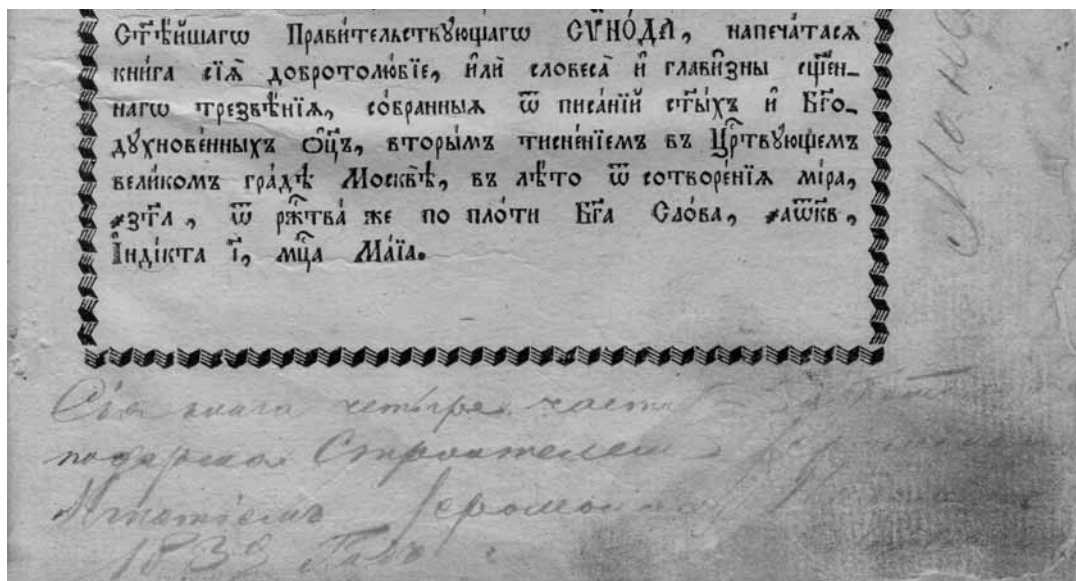 Ст҃ѣ́йшагѡ Прави́тельствꙋющагѡ СѴНО́ДА, напеча́тасѧ
кни́га сїѧ̀ добротолю́бїе, и҆лѝ словеса̀ и҆ глави̑зны сщ҃ен-
нагѡ трезвѣ́нїѧ, со́бранныѧ ѿ писа́нїй ст҃ы́хъ и҆ Бг҃о-
дꙋхнове́нныхъ Ѻ҆ц҃ъ, вторы́мъ тисне́нїемъ въ Цр҃твꙋющемъ
вели́комъ гра́дѣ Москвѣ̀, въ лѣ́то ѿ сотворе́нїѧ мі́ра,
҂зт҃л, ѿ рж҃тва́ же по пло́ти Бг҃а Сло́ва, ҂аѿк҃в,
І҆нді́кта і҃, мц҃а Ма́їа.
Сія книга четыре части
подарена Строителем
Игнатіемъ Іеромонаху
1832 Года